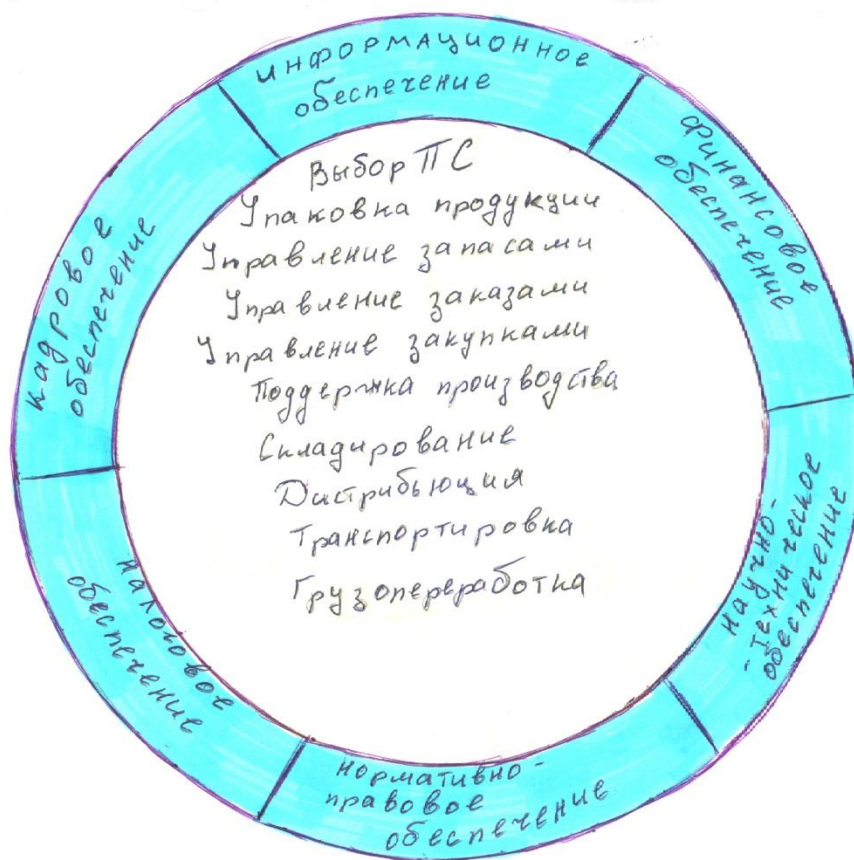 информационное
обеспечение
финансовое
обеспечение
научно-
-техническое
обеспечение
нормативно-
правовое
обеспечение
налоговое
обеспечение
кадровое
обеспечение
Выбор ПС
Упаковка продукции
Управление запасами
Управление заказами
Управление закупками
Поддержка производства
Складирование
Дистрибьюция
Транспортировка
Грузопереработка